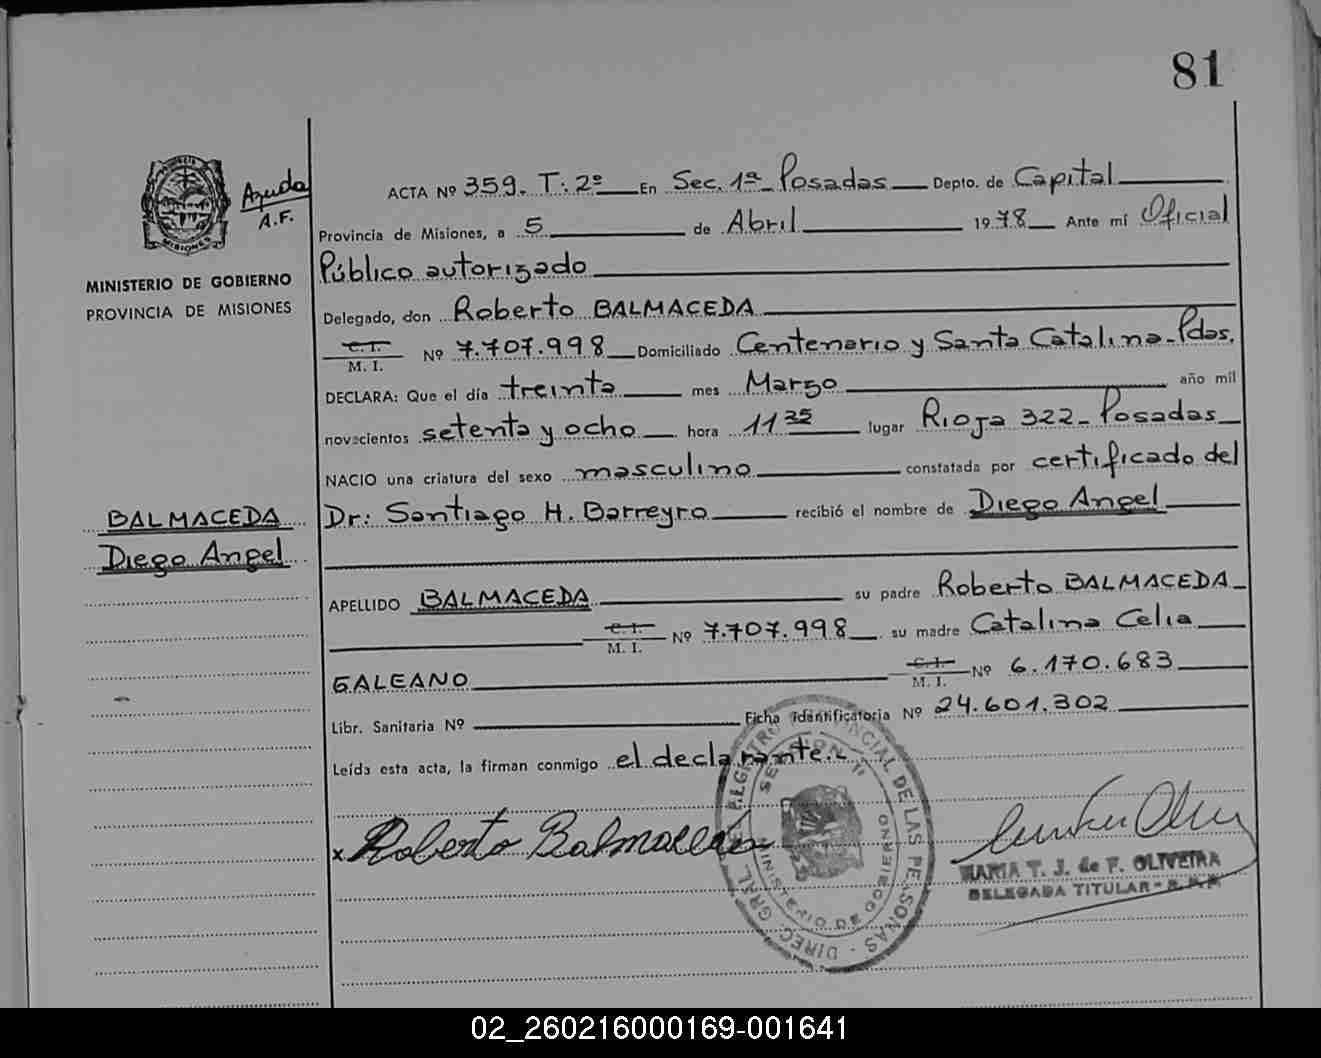 81
Ayuda
A.F.
MISIONES
MINISTERIO DE GOBIERNO
PROVINCIA DE MISIONES
BALMACEDA
Diego Angel
ACTA Nº 359. T: 2º En Sec. 1ª Posadas Depto. de Capital
Provincia de Misiones, a 5 de Abril 1978 Ante mí Oficial
Público autorizado
Delegado, don Roberto BALMACEDA
C. I.
M. I. Nº 7.707.998 Domiciliado Centenario y Santa Catalina-Pdas.
DECLARA: Que el día treinta mes Marzo año mil
novecientos setenta y ocho hora 11 35 lugar Rioja 322- Posadas
NACIO una criatura del sexo masculino constatada por certificado del
Dr: Santiago H. Barreyro recibió el nombre de Diego Angel
APELLIDO BALMACEDA su padre Roberto BALMACEDA
C. I.
M. I. Nº 7.707.998 su madre Catalina Celia
GALEANO C. I.
M. I. Nº 6.170.683
Libr. Sanitaria Nº Ficha Identificatoria Nº 24.601.302
Leída esta acta, la firman conmigo el declarante.
x Roberto Balmaceda
DIREC. GRAL. REGISTRO PROVINCIAL DE LAS PERSONAS
SECCION 1ª
MINISTERIO DE GOBIERNO
MARIA T. J. de F. OLIVEIRA
DELEGADA TITULAR
02_260216000169-001641